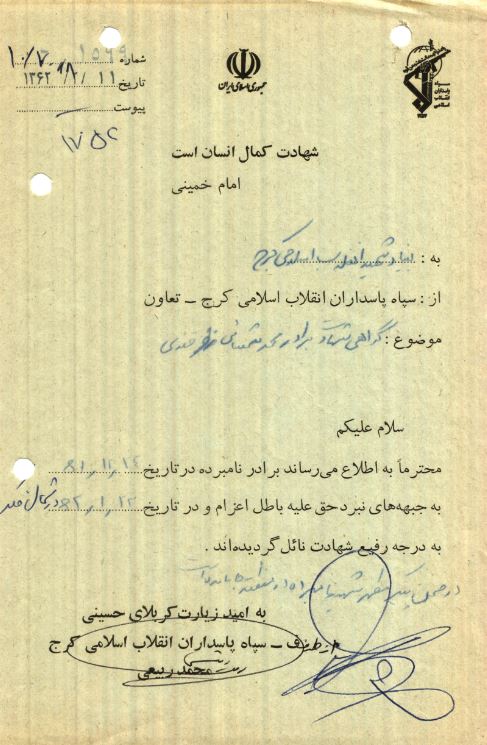 جمهوری اسلامی ایران
سپاه
پاسداران
انقلاب
اسلامی
شماره
تاریخ ۱۱ / ۸ / ۱۳۶۲
پیوست
۱۷۵۲
شهادت کمال انسان است
امام خمینی
به : بنیاد شهید انقلاب اسلامی کرج
از : سپاه پاسداران انقلاب اسلامی کرج ــ تعاون
موضوع : گواهی شهادت برادر محمد
سلام علیکم
محترماً به اطلاع می‌رساند برادر نامبرده در تاریخ
به جبهه‌های نبرد حق علیه باطل اعزام و در تاریخ
به درجه رفیع شهادت نائل گردیده‌اند .
در ضمن پیکر مطهر شهید
به امید زیارت کربلای حسینی
از طرف ــ سپاه پاسداران انقلاب اسلامی کرج
محمد ربیعی